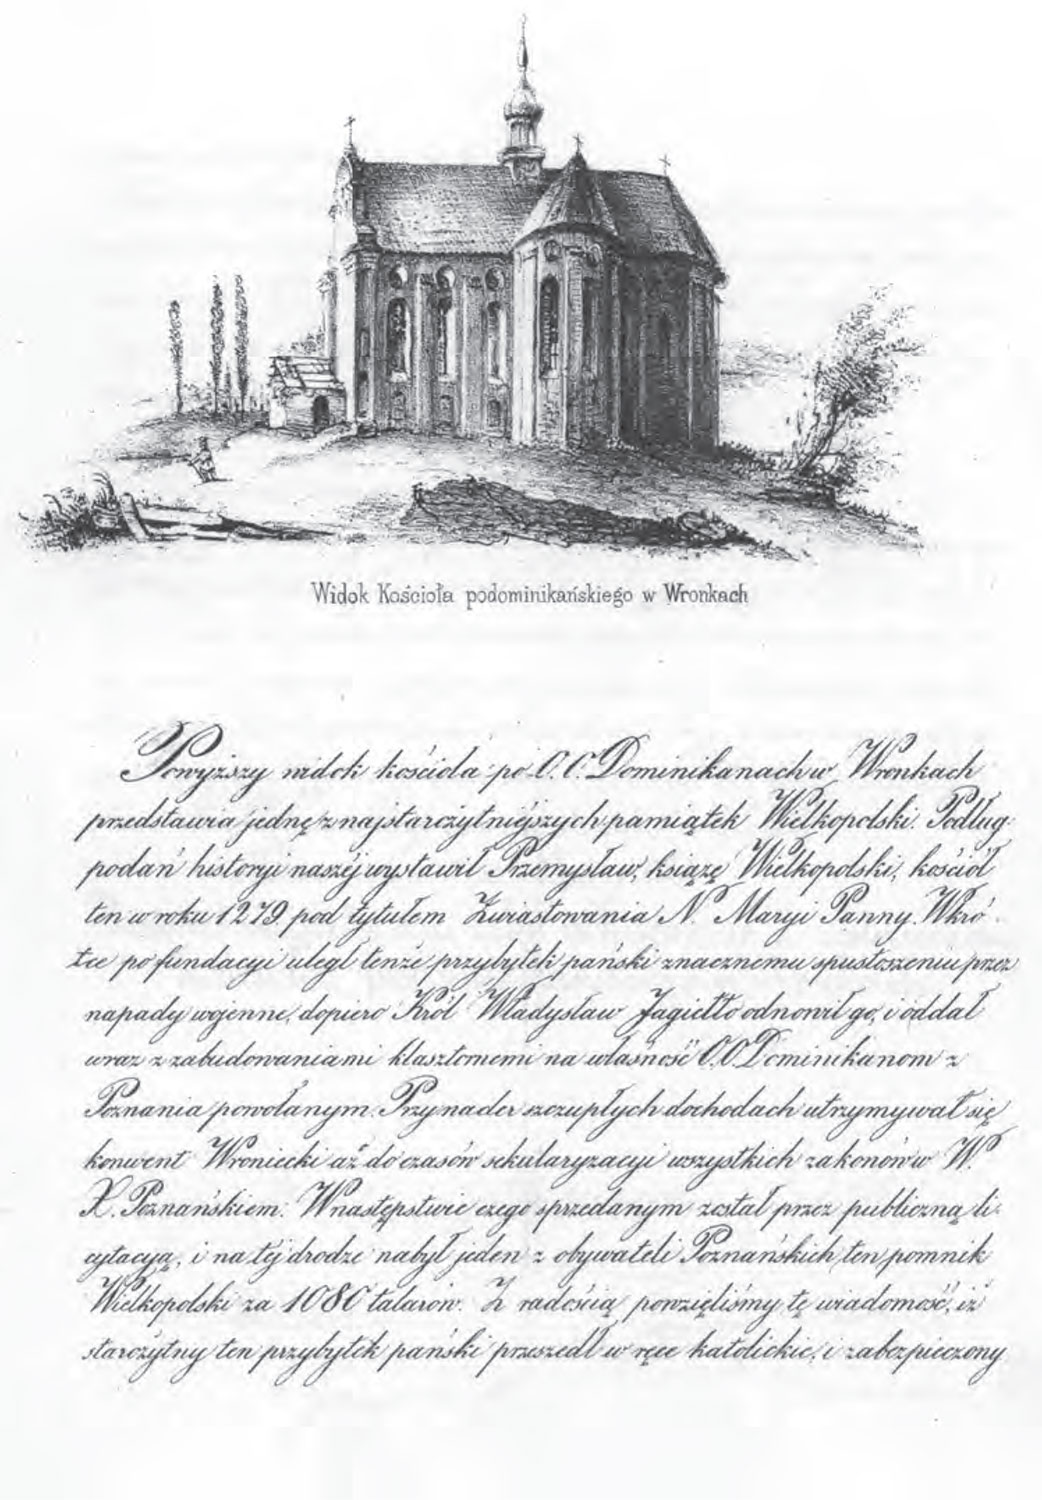 Widok Kościoła podominikańskiego w Wronkach
Powyższy widok kościoła po O.O. Dominikanach w Wronkach
przedstawia jednę z najstarożytniejszych pamiątek Wielkopolski. Podług
podań historyi naszéj wystawił Przemysław, książę Wielkopolski, kościół
ten w roku 1279 pod tytułem Zwiastowania N. Maryi Panny. Wkró-
tce po fundacyi uległ tenże przybytek pański znacznemu spustoszeniu przez
napady wojenne, dopiero Król Władysław Jagiełło odnowił go, i oddał
wraz z zabudowaniami klasztornemi na własność O.O Dominikanom z
Poznania powołanym. Przy nader szczupłych dochodach utrzymywał się
konwent Wroniecki aż do czasów sekularyzacyi wszystkich zakonów w W.
X. Poznańskiem. W następstwie czego sprzedanym został przez publiczną li-
cytacyą, i na téj drodze nabył jeden z obywateli Poznańskich ten pomnik
Wielkopolski za 1080 talarów. Z radością powzięliśmy tę wiadomość, iż
starożytny ten przybytek pański przeszedł w ręce katolickie, i zabezpieczony